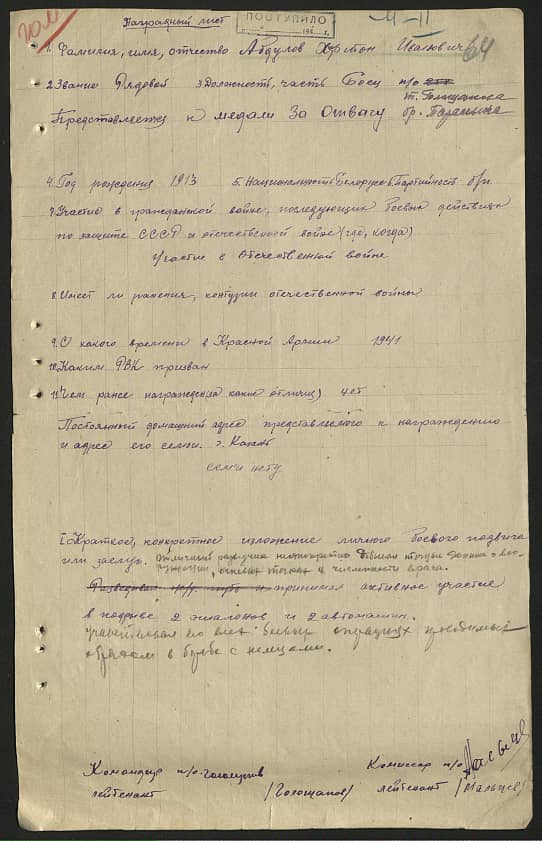 Наградной лист
ПОСТУПИЛО
64
1. Фамилия, имя, отчество Абдулов Иванович
2. Звание Рядовой 3. Должность, часть Боец п/о
Представляется к медали За Отвагу бр.
4. Год рождения 1913 5. Национальность Белорус 6. Партийность б/п.
7. Участие в гражданской войне, последующих боевых действиях
по защите СССР и отечественной войне (где, когда)
Участие в Отечественной войне
8. Имеет ли ранения, контузии отечественной войны
9. С какого времени в Красной Армии 1941
10. Каким РВК призван
11. Чем ранее награжден (за какие отличия) нет
Постоянный домашний адрес представляемого к награждению
и адрес его семьи. г. Казань
семьи нету
Краткое, конкретное изложение личного боевого подвига
или заслуг. Отличный разведчик неоднократно точные данные о
огневых точках и численности врага.
принимал активное участие
в подрыве 2 эшелонов и 2 автомашин.
Участвовал во всех боевых операциях проводимых
отрядом в борьбе с немцами.
Командир п/о Комиссар п/о
лейтенант /Голощапов/ лейтенант /Мальцев/